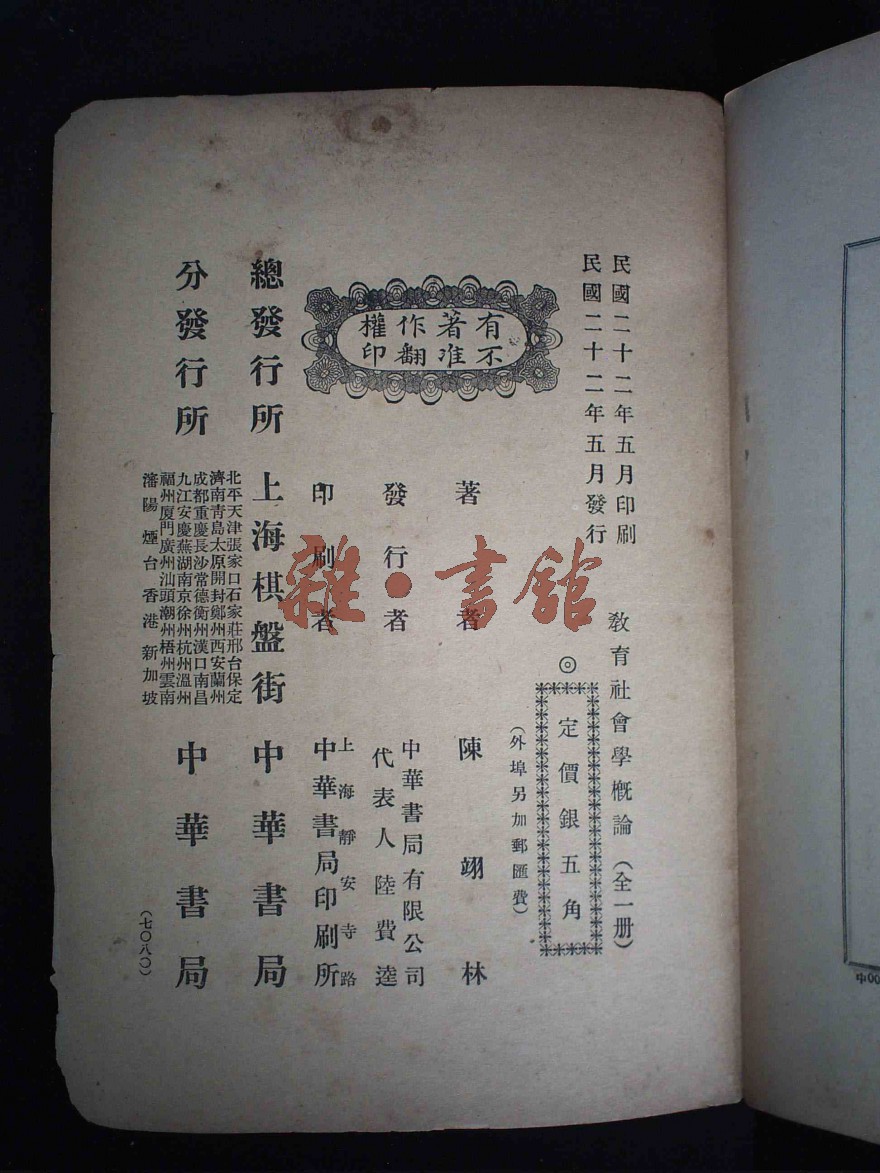 民國二十二年五月印刷
民國二十二年五月發行
教育社會學概論（全一册）
◎定價銀五角
（外埠另加郵匯費）
有著作權
不准翻印
著者 陳翊林
發行者 中華書局有限公司
代表人陸費逵
印刷者 上海靜安寺路
中華書局印刷所
總發行所 上海棋盤街 中華書局
分發行所
北平天津張家口石家莊邢台保定
濟南青島太原開封鄭州西安蘭州
成都重慶長沙常德衡州漢口南昌
九江安慶蕪湖南京徐州杭州溫州
福州厦門廣州汕頭潮州梧州雲南
瀋陽煙台香港新加坡
中華書局
（七〇八〇）
雜·書館
中00